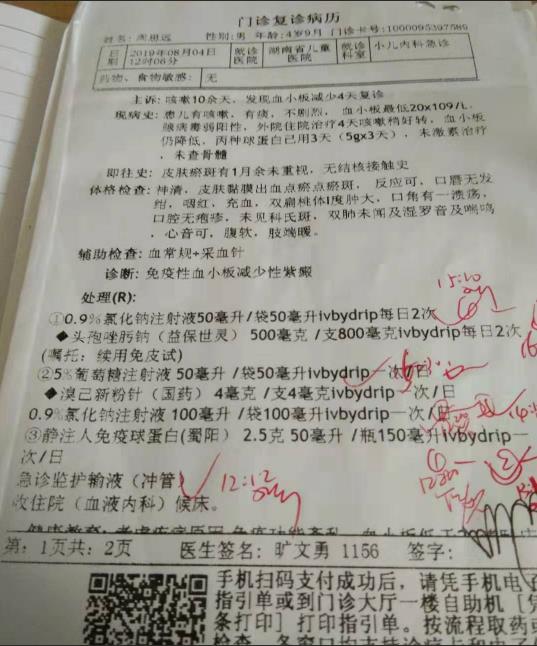 门诊复诊病历
姓名: 周思远 性别:男 年龄:4岁9月 门诊卡号:1000095397589
日期 2019年08月04日 12时06分 就诊医院 湖南省儿童医院 就诊科室 小儿内科急诊
药物、食物敏感: 无
主诉: 咳嗽10余天, 发现血小板减少4天复诊
现病史: 患儿有咳嗽, 有痰, 不剧烈, 血小板最低20x109/L.
腺病毒弱阳性, 外院住院治疗4天咳嗽稍好转, 血小板
仍降低, 丙种球蛋白已用3天 (5gx3天) , 未激素治疗
, 未查骨髓
即往史: 皮肤瘀斑有1月余未重视, 无结核接触史
体格检查: 神清, 皮肤黏膜出血点瘀点瘀斑, 反应可, 口唇无发
绀, 咽红, 充血, 双扁桃体I度肿大, 口角有一溃疡,
口腔无疱疹, 未见科氏斑, 双肺未闻及湿罗音及喘鸣
, 心音可, 腹软, 肢端暖。
辅助检查: 血常规+采血针
诊断: 免疫性血小板减少性紫癜
处理(R):
①0.9%氯化钠注射液50毫升/袋50毫升ivbydrip每日2次
◆头孢唑肟钠 (益保世灵) 500毫克 /支800毫克ivbydrip每日2次
(嘱托: 续用免皮试)
②5%葡萄糖注射液 50毫升 /袋50毫升ivbydrip一次/日
◆溴己新粉针 (国药) 4毫克 /支4毫克ivbydrip一次/日
0.9%氯化钠注射液 100毫升 /袋100毫升ivbydrip一次/日
③静注人免疫球蛋白(蜀阳) 2.5克 50毫升 /瓶150毫升ivbydrip一
次/日
急诊监护输液 (冲管)
收住院 (血液内科) 候床。
15:10
12:12
第: 1页共: 2页 医生签名: 旷文勇 1156 签字:
手机扫码支付成功后, 请凭手机电子
指引单或到门诊大厅一楼自助机 [凭
条打印] 打印指引单。按流程取药或